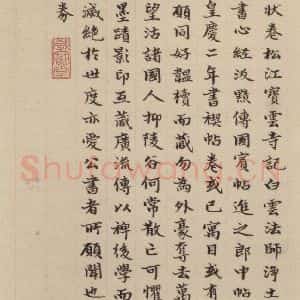 狀卷松江寶雲寺記白雲法師淨土
書心經汲黯傳國賓帖進之郎中帖
皇慶二年書禊帖卷或已寓目或有
願同好韞櫝而藏勿為外豪奪去萬
望沽諸國人抑陵谷何常散亡可懼
墨蹟影印互藏廣流傳以裨後學而
滅絕於世度亦愛公書者所願聞也
Shufawang.CN